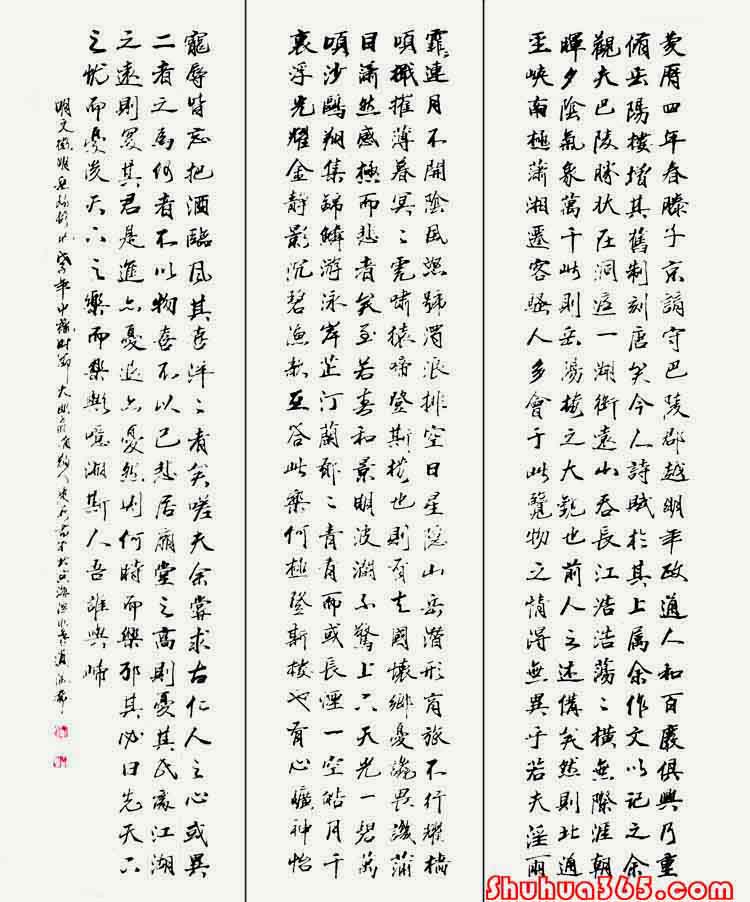 慶曆四年春滕子京謫守巴陵郡越明年政通人和百廢俱興乃重
脩岳陽樓增其舊制刻唐賢今人詩賦於其上属余作文以記之余
觀夫巴陵勝狀在洞庭一湖銜遠山吞長江浩浩蕩〻橫無際涯朝
暉夕陰氣象萬千此則岳陽樓之大觀也前人之述備矣然則北通
巫峽南極瀟湘遷客騷人多會于此覽物之情得無異乎若夫淫雨
霏〻連月不開陰風怒號濁浪排空日星隱山岳潛形商旅不行耀檣
頃檝摧薄暮冥〻虎嘯猿啼登斯樓也則有去國懷鄉憂讒畏譏蒲
目蕭然感極而悲者矣至若春和景明波瀾不驚上下天光一碧萬
頃沙鷗翔集錦鱗游泳岸芷汀蘭郁〻青青而或長煙一空皓月千
裏浮光耀金靜影沉碧漁歌互答此樂何極登斯樓也有心曠神怡
寵辱皆忘把酒臨風其喜洋〻者矣嗟夫余嘗求古仁人之心或異
二者之為何者不以物喜不以己悲居廟堂之高則憂其民處江湖
之遠則憂其君是進亦憂退亦憂然則何時而樂耶其必曰先天下
之忧而憂後天下之樂而樂歟噫微斯人吾誰與歸
明文徵明 年中秋時節
Shuhua365.com